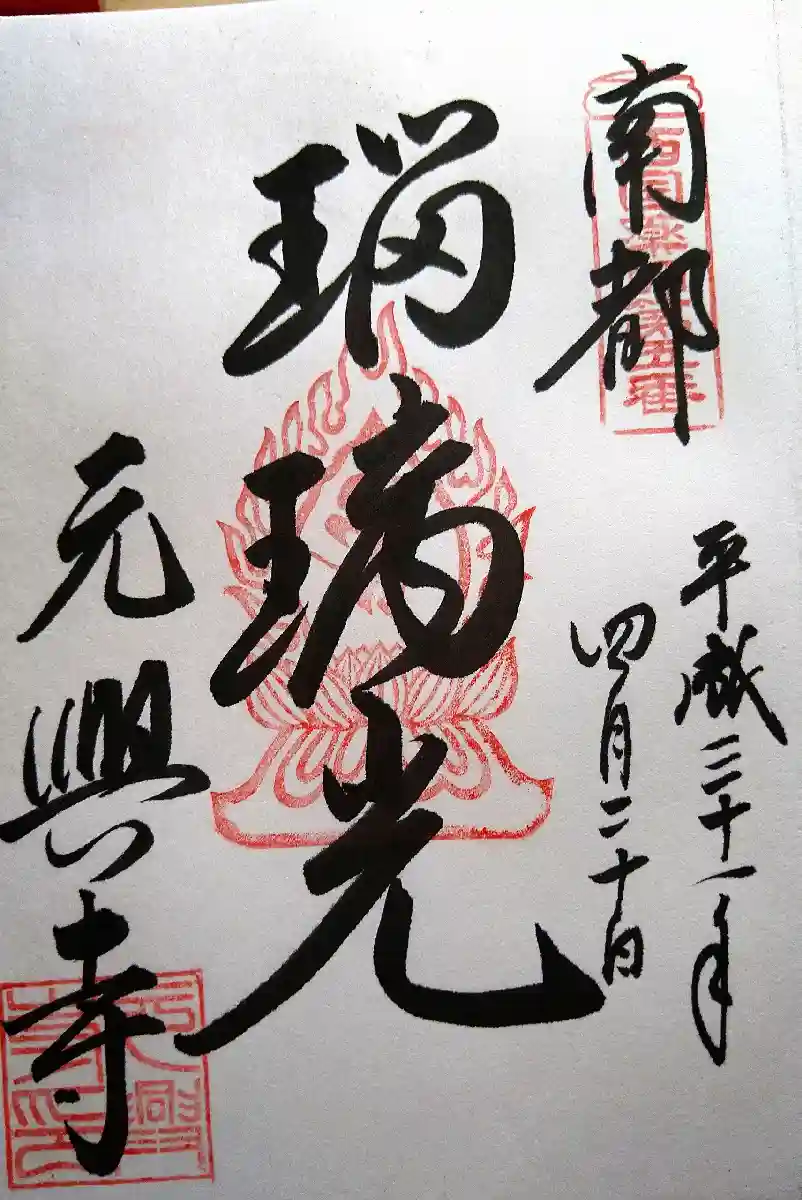 南都
平成三十一年
四月二十日
瑠璃光
元興寺
元興寺印